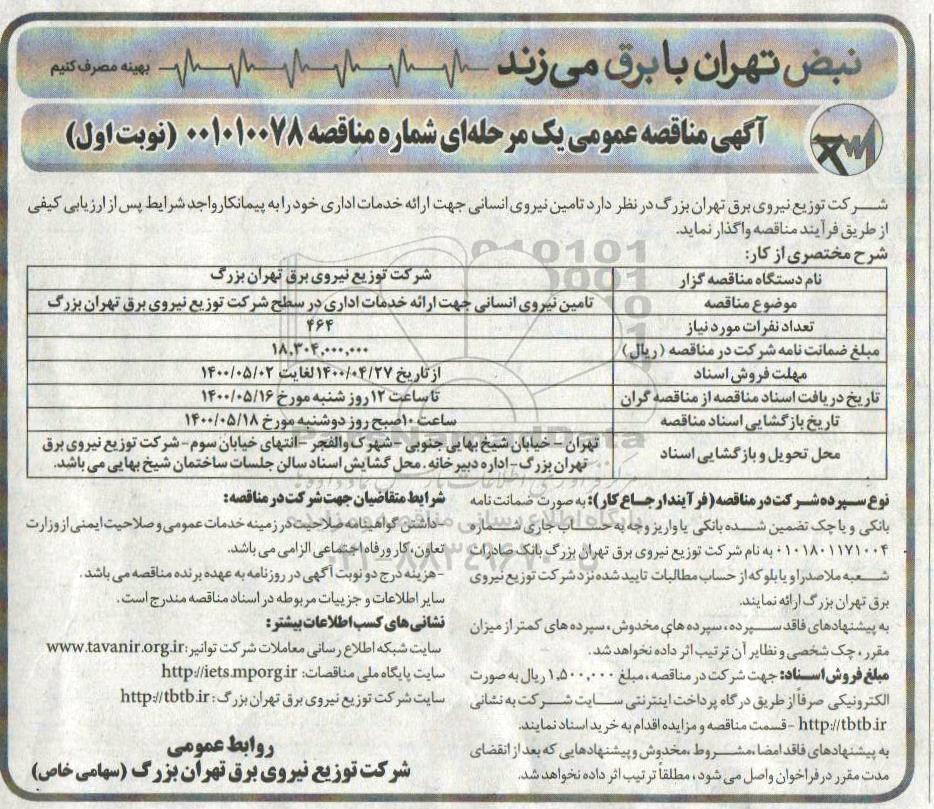 نبض تهران با برق می‌زند
بهینه مصرف کنیم
آگهی مناقصه عمومی یک مرحله‌ای شماره مناقصه ۰۰۱۰۱۰۰۷۸ (نوبت اول)
شرکت توزیع نیروی برق تهران بزرگ در نظر دارد تامین نیروی انسانی جهت ارائه خدمات اداری خود را به پیمانکار واجد شرایط پس از ارزیابی کیفی
از طریق فرآیند مناقصه واگذار نماید.
شرح مختصری از کار:
نام دستگاه مناقصه گزار شرکت توزیع نیروی برق تهران بزرگ
موضوع مناقصه تامین نیروی انسانی جهت ارائه خدمات اداری در سطح شرکت توزیع نیروی برق تهران بزرگ
تعداد نفرات مورد نیاز ۴۶۴
مبلغ ضمانت نامه شرکت در مناقصه (ریال) ۱۸,۳۰۴,۰۰۰,۰۰۰
مهلت فروش اسناد از تاریخ ۱۴۰۰/۰۴/۲۷ لغایت ۱۴۰۰/۰۵/۰۲
تاریخ دریافت اسناد مناقصه از مناقصه گران تا ساعت ۱۲ روز شنبه مورخ ۱۴۰۰/۰۵/۱۶
تاریخ بازگشایی اسناد مناقصه ساعت ۱۰ صبح روز دوشنبه مورخ ۱۴۰۰/۰۵/۱۸
محل تحویل و بازگشایی اسناد تهران - خیابان شیخ بهایی جنوبی - شهرک والفجر - انتهای خیابان سوم - شرکت توزیع نیروی برق
تهران بزرگ - اداره دبیرخانه. محل گشایش اسناد سالن جلسات ساختمان شیخ بهایی می باشد.
نوع سپرده شرکت در مناقصه (فرآیند ارجاع کار): به صورت ضمانت نامه
بانکی و یا چک تضمین شده بانکی یا واریز وجه به حساب جاری شماره
۰۱۰۱۸۰۱۱۷۱۰۰۴ به نام شرکت توزیع نیروی برق تهران بزرگ بانک صادرات
شعبه ملاصدرا و یا بلوکه از حساب مطالبات تایید شده نزد شرکت توزیع نیروی
برق تهران بزرگ ارائه نمایند.
به پیشنهادهای فاقد سپرده، سپرده های مخدوش، سپرده های کمتر از میزان
مقرر، چک شخصی و نظایر آن ترتیب اثر داده نخواهد شد.
مبلغ فروش اسناد: جهت شرکت در مناقصه، مبلغ ۱,۵۰۰,۰۰۰ ریال به صورت
الکترونیکی صرفاً از طریق درگاه پرداخت اینترنتی سایت شرکت به نشانی
http://tbtb.ir - قسمت مناقصه و مزایده اقدام به خرید اسناد نمایند.
به پیشنهادهای فاقد امضا، مشروط، مخدوش و پیشنهادهایی که بعد از انقضای
مدت مقرر در فراخوان واصل می شود، مطلقاً ترتیب اثر داده نخواهد شد.
شرایط متقاضیان جهت شرکت در مناقصه:
-داشتن گواهینامه صلاحیت در زمینه خدمات عمومی و صلاحیت ایمنی از وزارت
تعاون، کار و رفاه اجتماعی الزامی می باشد.
-هزینه درج دو نوبت آگهی در روزنامه به عهده برنده مناقصه می باشد.
سایر اطلاعات و جزییات مربوطه در اسناد مناقصه مندرج است.
نشانی های کسب اطلاعات بیشتر:
سایت شبکه اطلاع رسانی معاملات شرکت توانیر: www.tavanir.org.ir
سایت پایگاه ملی مناقصات: http://iets.mporg.ir
سایت شرکت توزیع نیروی برق تهران بزرگ: http://tbtb.ir
روابط عمومی
شرکت توزیع نیروی برق تهران بزرگ (سهامی خاص)